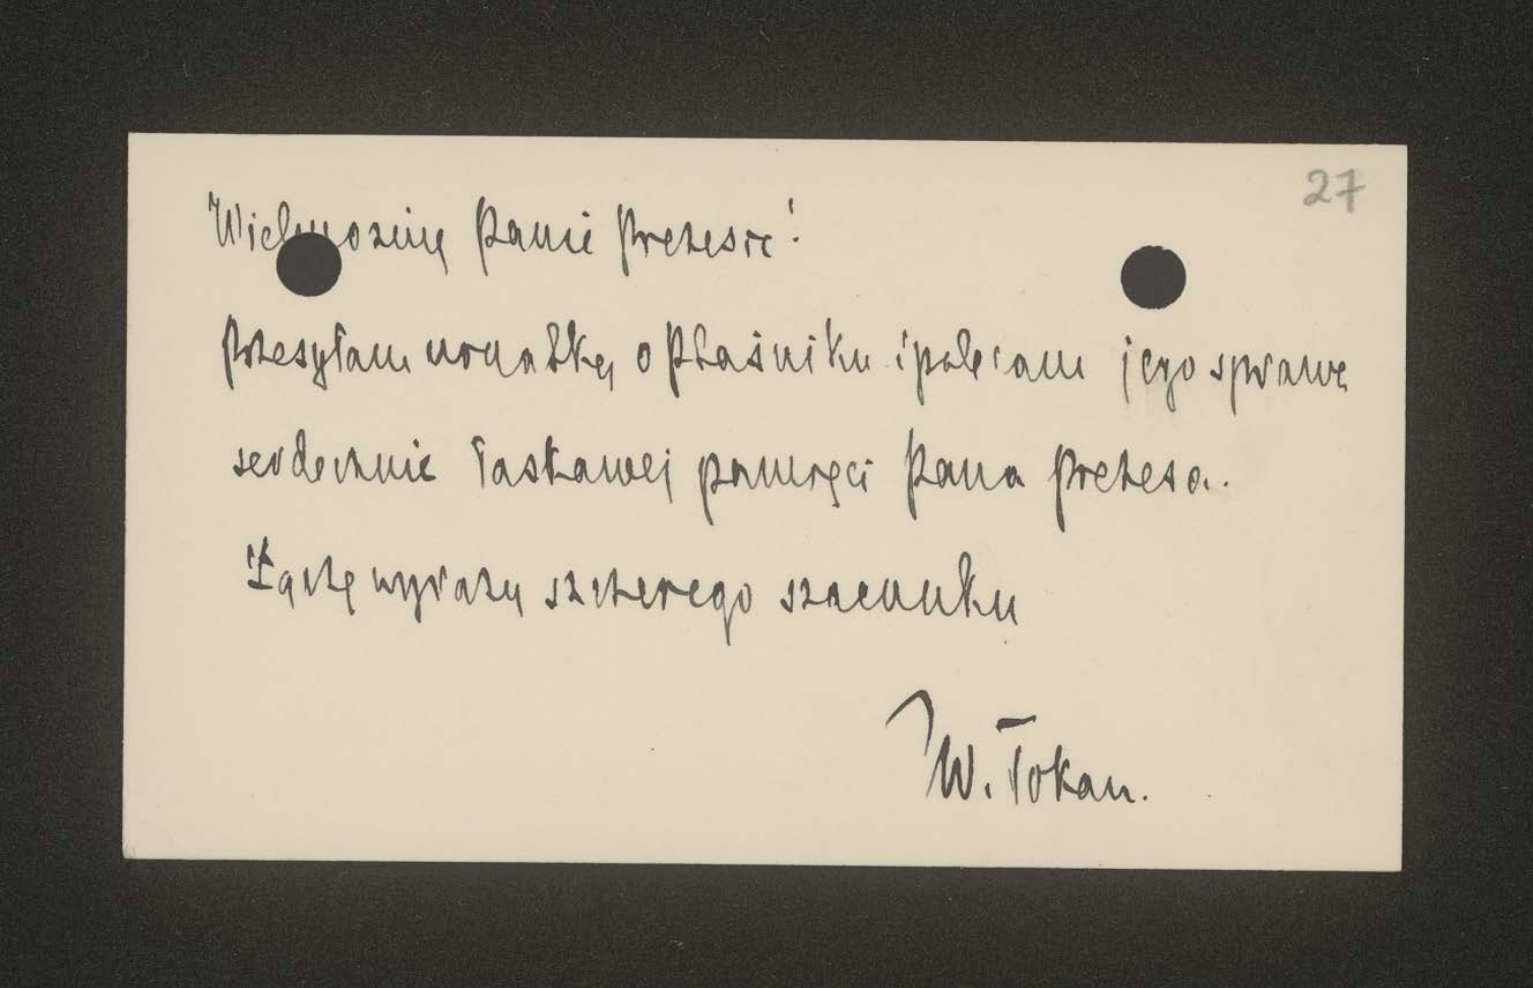 27
Wielmożny Panie Prezesie!
Przesyłam notatkę o Ptaśniku i polecam jego sprawę
serdecznie łaskawej pamięci Pana Prezesa.
Łączę wyrazy szczerego szacunku
W. Tokarz.